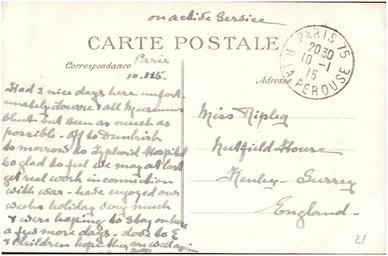 on active Service
CARTE POSTALE
Correspondance
Paris
10.1.15.
Adresse
PARIS 15
2030
10-1
15
R. LA PEROUSE
Had 2 nice days here unfort-
unately Louvre & all Museums
shut but seen as much as
possible - off to Dunkirk
to morrow to Typhoid Hospital
so glad to feel we may at last
get real work in connection
with war - have enjoyed our
weeks holiday very much
& were hoping to stay on here
a few more days - love to E
& children hope they are well again
Miss Ripley
Nutfield House
Henley - Surrey
England -
21